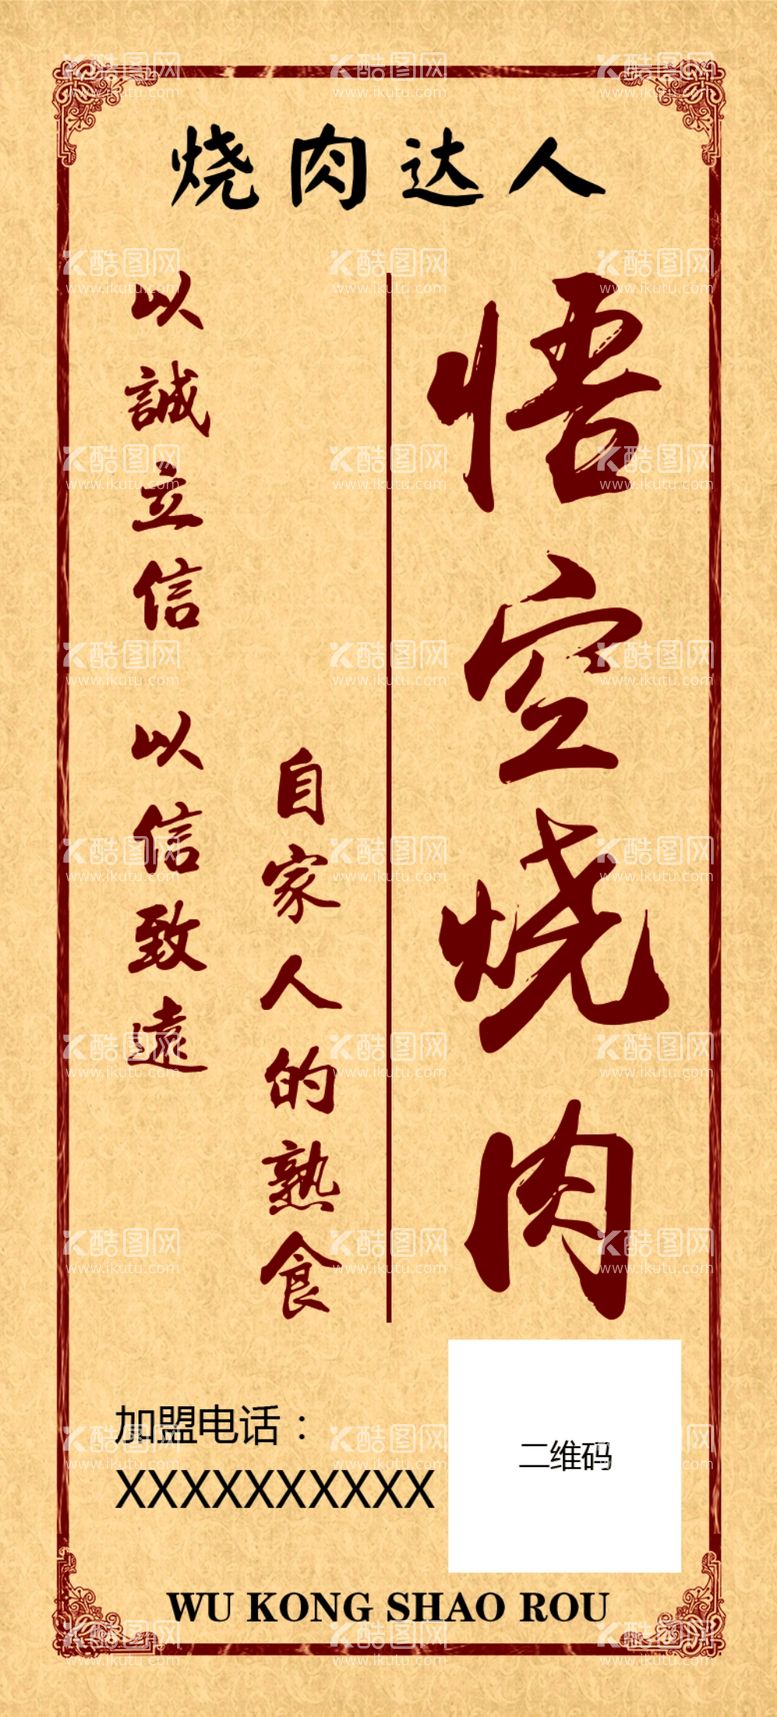 烧肉达人
悟空烧肉
自家人的熟食
以誠立信 以信致遠
加盟电话：
XXXXXXXXXX
二维码
WU KONG SHAO ROU
酷图网
www.ikutu.com